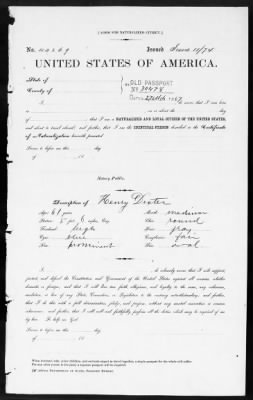 [FORM FOR NATURALIZED CITIZEN.]
No. Issued June 11/74
UNITED STATES OF AMERICA.
State of
County of
OLD PASSPORT
No. 30478
I, do swear that I was born
day
of , 18 ; that I am a NATURALIZED AND LOYAL CITIZEN OF THE UNITED STATES,
and about to travel abroad; and further, that I am the IDENTICAL PERSON described in the Certificate
of Naturalization herewith presented.
Sworn to before me this day
of , 18
Notary Public.
Description of Henry Dexter
Age: 61 years Mouth: medium
Stature: 5 feet 6 inches, Eng. Chin: round
Forehead: high Hair: gray
Eyes: blue Complexion: fair
Nose: prominent Face: oval
I, do solemnly swear that I will support,
protect, and defend the Constitution and Government of the United States against all enemies, whether
domestic or foreign; and that I will bear true faith, allegiance, and loyalty to the same, any ordinance,
resolution, or law of any State, Convention, or Legislature to the contrary notwithstanding; and further,
that I do this with a full determination, pledge, and purpose, without any mental reservation or evasion
whatsoever; and further, that I will well and faithfully perform all the duties which may be required of me
by law: So help me God.
Sworn to before me this day
of , 18